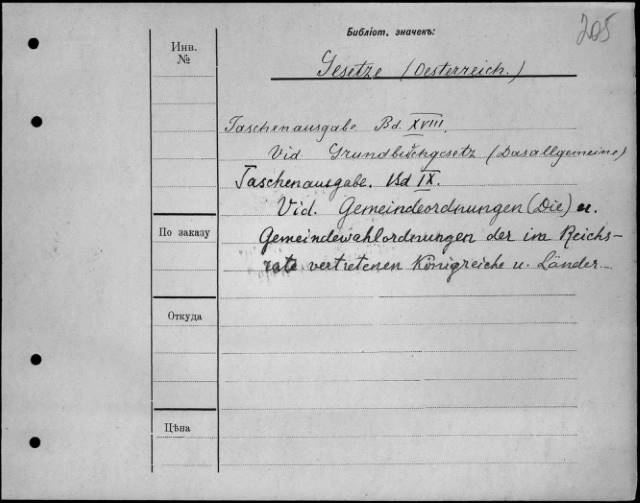 205
Библіот. значекъ:
Инв.
№
Gesetze (Oesterreich.)
Taschenausgabe Bd. XVIII.
Vid Grundbuchgesetz (Das allgemeine)
Taschenausgabe. Bd IX.
Vid. Gemeindeordnungen (Die) u.
По заказу
Gemeindewahlordnungen der im Reichs-
rate vertretenen Königreiche u. Länder.
Откуда
Цѣна